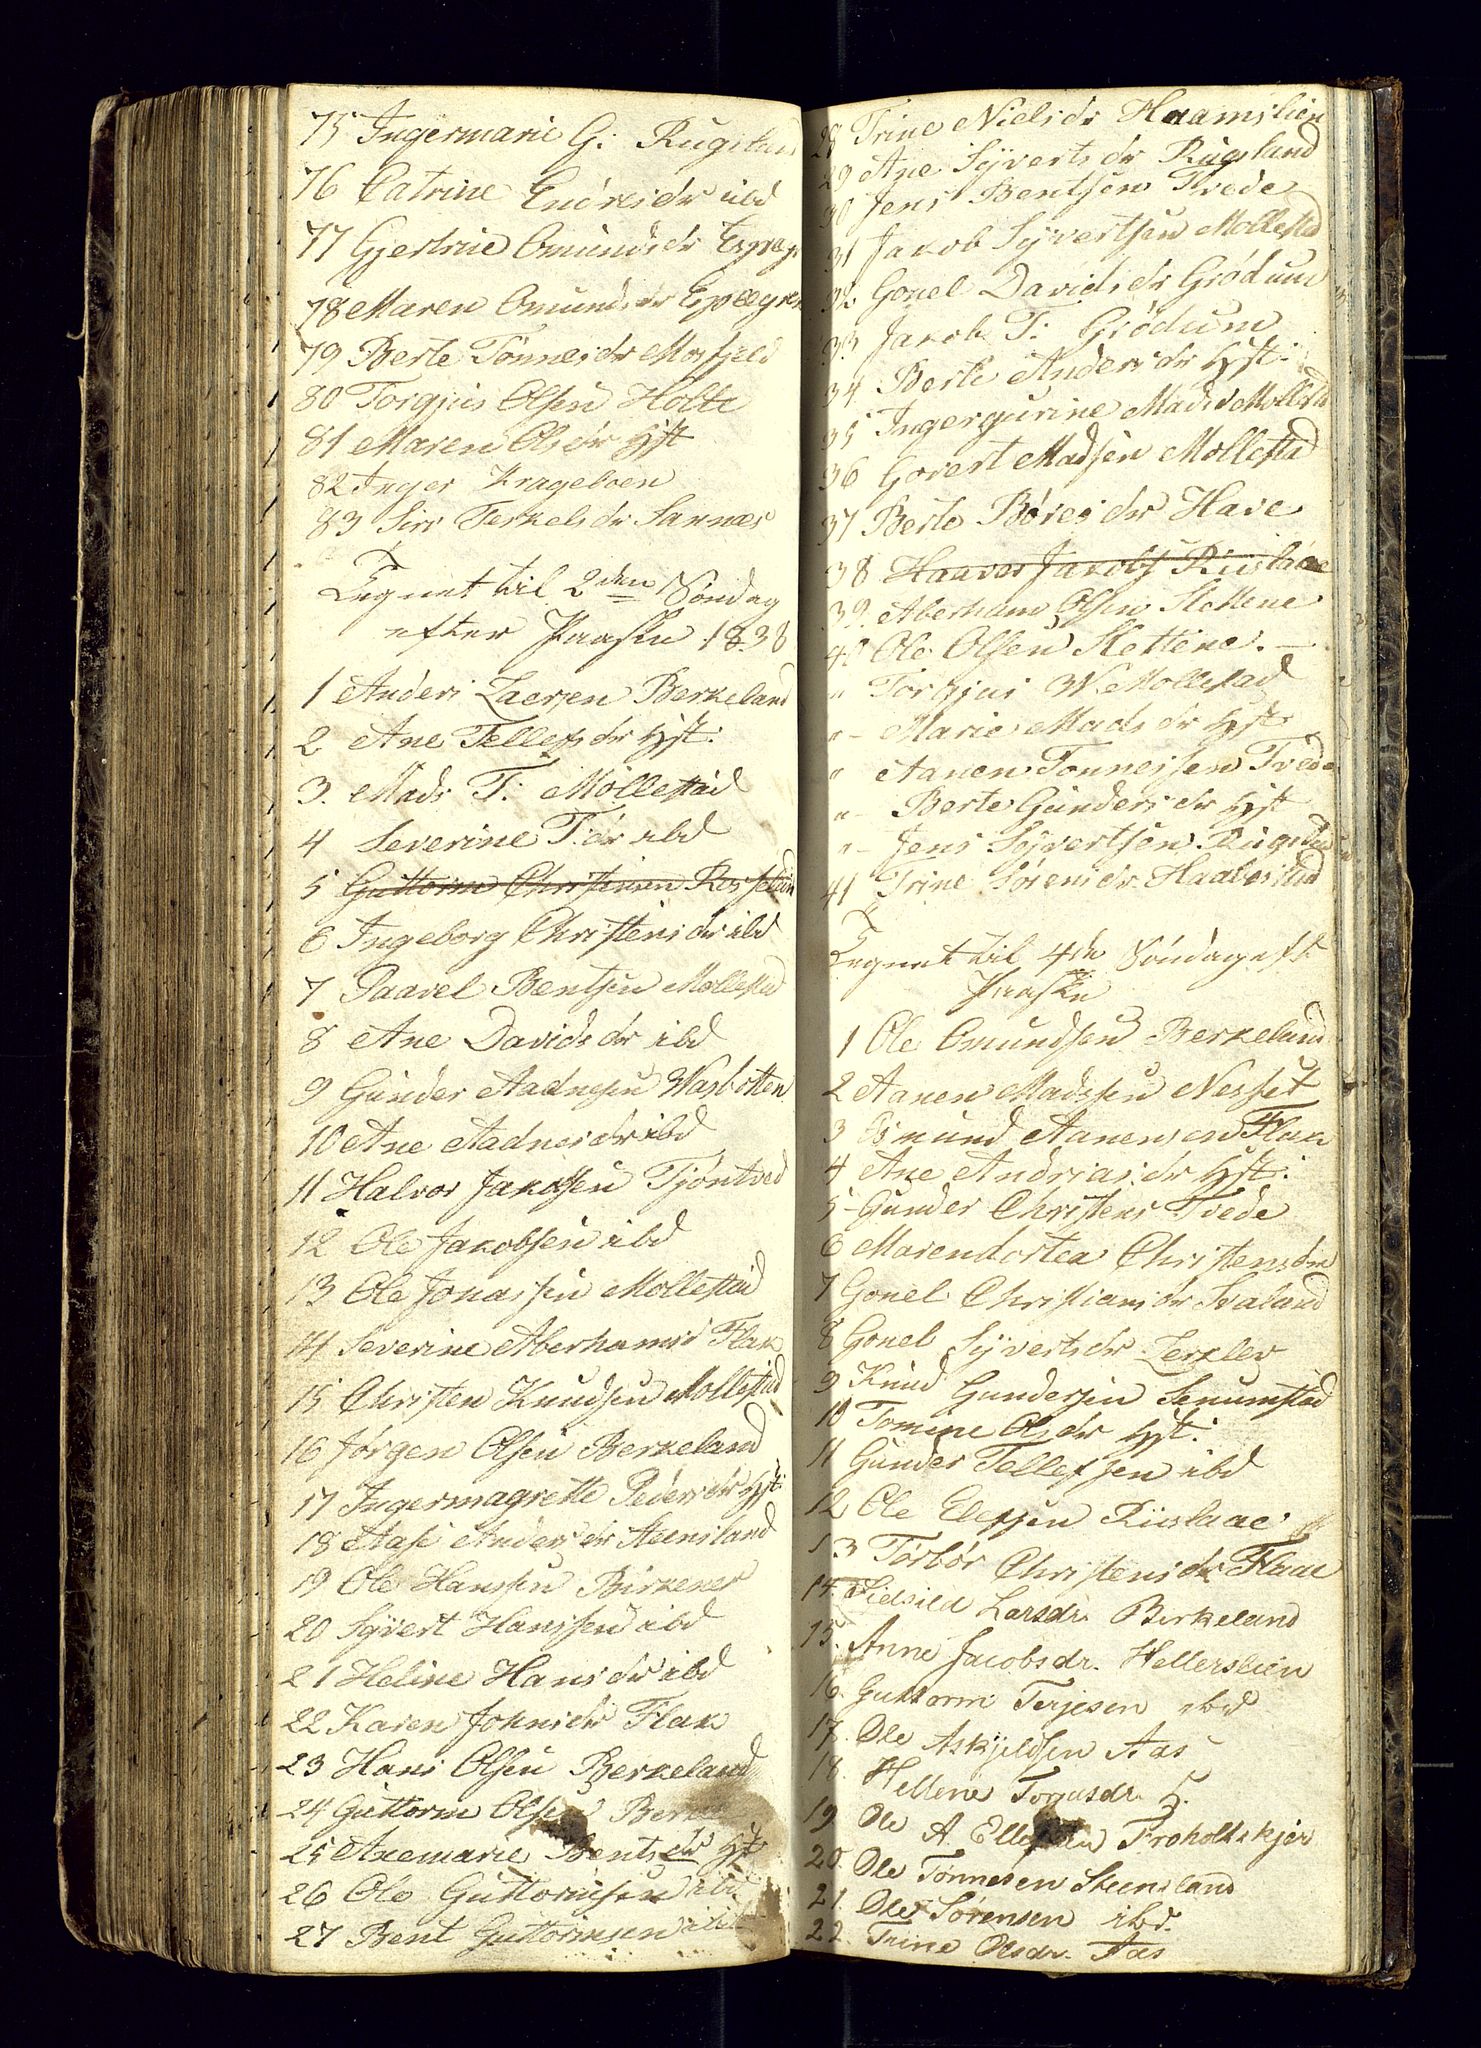 75 Ingermarie G: Rugsland
76 Catrine Endresdr ibd
77 Gjertrue Omundsdr
78 Maren Omundsdr
79 Berte Tønnesdr Mosfjeld
80 Torgjus Olsen Holte
81 Maren Olsdr Hst
82 Inger Krageboen
83 Siri Terkelsdr Sannæs
Tegnet til 2den Søndag
efter Paaske 1838
1 Anders Laersen Berkeland
2 Ane Tellefsdr Hst:
3. Mads T: Mollestad
4 Severine T: dr ibd
5 Guttorm Christensen
6 Ingeborg Christensdr ibd
7 Paavel Bentsen Mollestad
8 Ane Davidsdr ibd
9 Gunder Aadnesen Wasbotten
10 Ane Aadnesdr ibd
11 Halvor Jakobsen Tjøntved
12 Ole Jakobsen ibd
13 Ole Jonassen Mollestad
14 Severine Aberhamsd Flak
15 Christen Knudsen Mollestad
16 Jørgen Olsen Berkeland
17 Ingermagrette Pedersdr Hst:
18 Aase Andersdr Steensland
19 Ole Hanssen Birkenes
20 Syvert Hanssen ibd
21 Heline Hansdr ibd
22 Karen Johnsdr Flak
23 Hans Olsen Berkeland
24 Guttorm Olsen
25 Anemarie Bentsdr Hst
26 Ole Guttormsen ibd
27 Bent Guttormsen ibd
28 Trine Nielsdr Haamslien
29 Ane Syvertsdr Rugsland
30 Jens Bentsen Tvede
31 Jakob Syvertsen Mollestad
32 Gonel Davidsdr Grødum
33 Jakob T: Grødum
34 Berte Andersdr Hst:
35 Ingergurine Madsd Mollestad
36 Govert Madsen Mollestad
37 Berte Børesdr Have
38 Haavor Jakobs Riislaae
39. Aberham Olsen Slettene
40 Ole Olsen Slettene. —
" Torgjus W. Mollestad
" – Marie Madsdr Hst
" Aanen Tonnessen Tvede
" – Berte Gundersdr Hst
" – Jens Syvertsen Rugsland
41 Trine Sørensdr Haabestad
Tegnet til 4de Søndag eft
Paaske
1 Ole Omundsen Berkeland
2 Aanen Madssen Nesset
3 Osmund Aanensen Flak
4 Ane Andriasdr Hst:
5 Gunder Christens Tvede
6 Marendortea Christensdr
7 Gonel Christiansdr Svaland
8 Gonel Syvertsdr Lerkelev
9 Knud Gundersen Senumstad
10 Tomine Olsdr Hst:
11 Gunder Tellefsen ibd
12 Ole Elefsen Riislaae
13 Torbor Christensdr Flaae
14. Sidsild Larsdr. Birkeland
15. Anne Jacobsdr. Hellerslien
16. Guttorm Terjesen ibd
17. Ole Askjeldsen Aas
18. Hellene Torjusdr.
19 Ole A. Ellefsen Froholtskjer
20. Ole Tonnesen Steensland
21. Ole Sørensen ibd.
22. Trine Olsdr. Aas